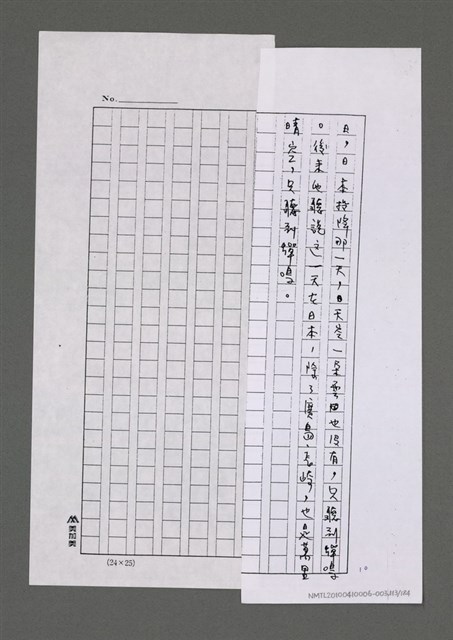 No.
日，日本投降那一天，日天空一朵雲也沒有，只聽到蟬鳴
。後來他聽說這一天在日本，除了廣島、長崎，也是萬里
晴空，只聽到蟬鳴。
(24×25)
14
NMTL20100410006-005